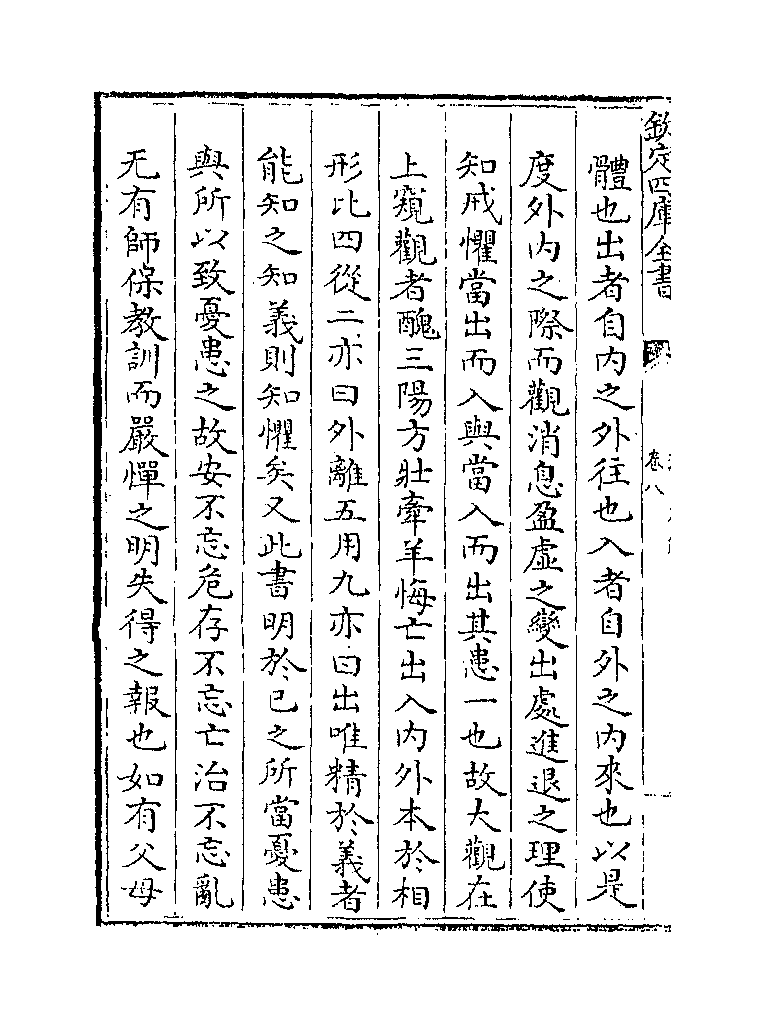 欽定四庫全書
卷八
體也出者自内之外往也入者自外之内來也以是
度外内之際而觀消息盈虛之變出處進退之理使
知戒懼當出而入與當入而出其患一也故大觀在
上窺觀者醜三陽方壯牽羊悔亡出入内外本於相
形比四從二亦曰外離五用九亦曰出唯精於義者
能知之知義則知懼矣又此書明於已之所當憂患
與所以致憂患之故安不忘危存不忘亡治不忘亂
无有師保教訓而嚴憚之明失得之報也如有父母